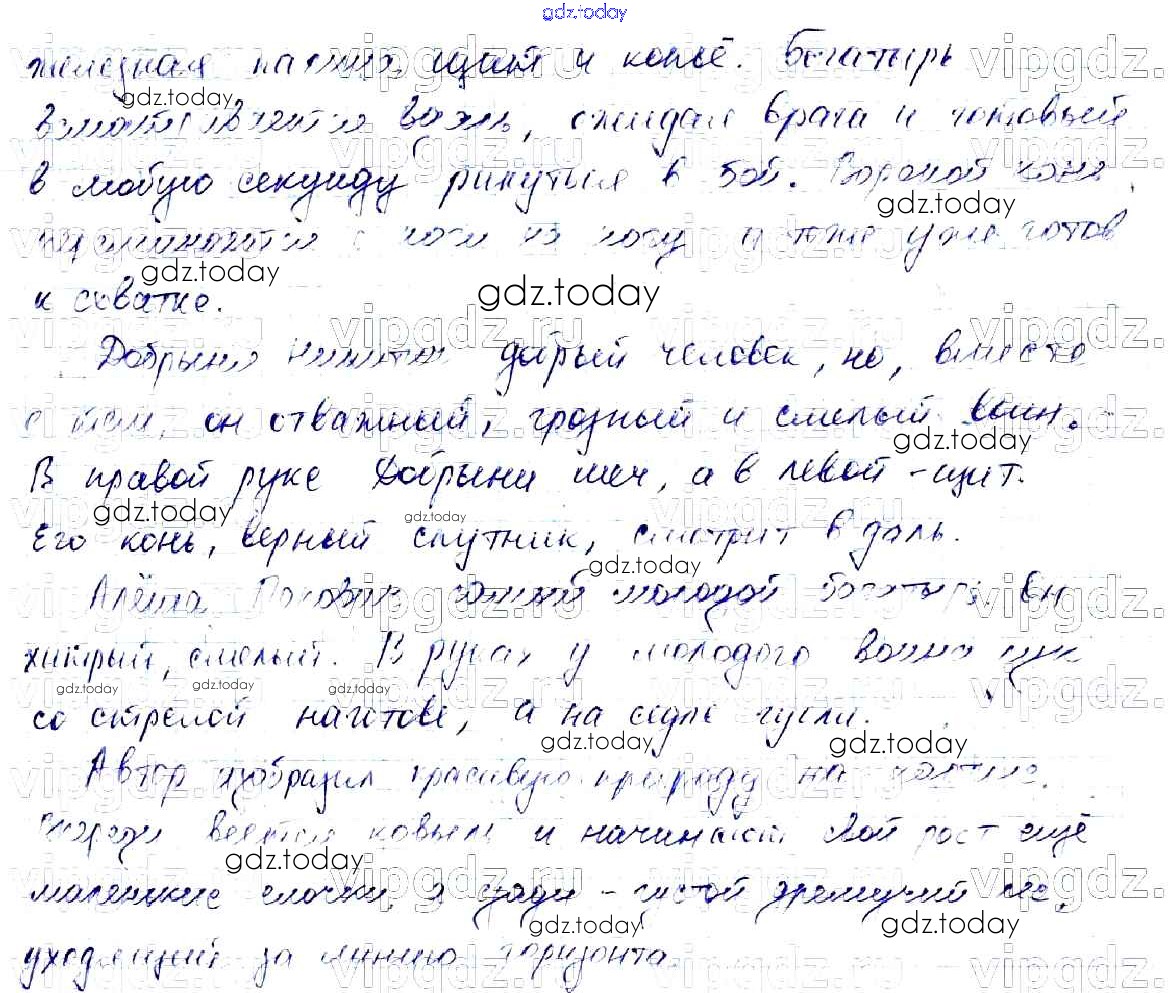 gdz.today
железная палица, щит и копьё. Богатырь
всматривается вдаль, ожидая врага и готовый
в любую секунду ринуться в бой. Вороной конь
переминается с ноги на ногу и тоже уже готов
к схватке.
Добрыня Никитич добрый человек, но, вместе
с тем, он отважный, грозный и смелый воин.
В правой руке Добрыни меч, а в левой - щит.
Его конь, верный спутник, смотрит вдаль.
Алёша Попович самый молодой богатырь. Он
хитрый, смелый. В руках у молодого воина лук
со стрелой наготове, а на седле гусли.
Автор изобразил красивую природу на картине.
Впереди ковыль и начинают свой рост ещё
маленькие ёлочки, а сзади - густой дремучий лес,
уходящий за линию горизонта.